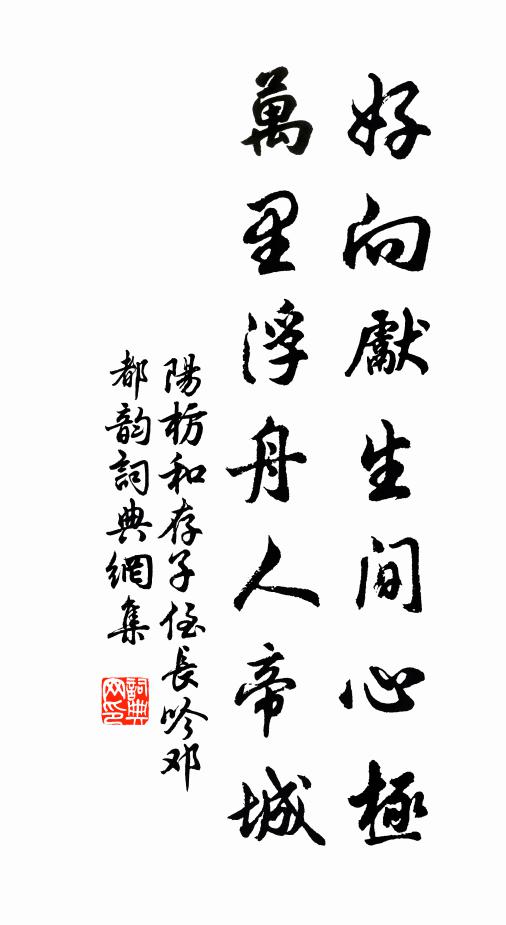 好向獻生間心極
萬里浮舟人帝城
陽枋和存子侄長吟邓
都韵詞典網集
詞典網印